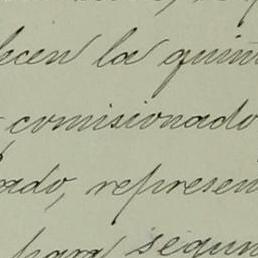 ecen la quint
comisionado
ado, represen
para segun